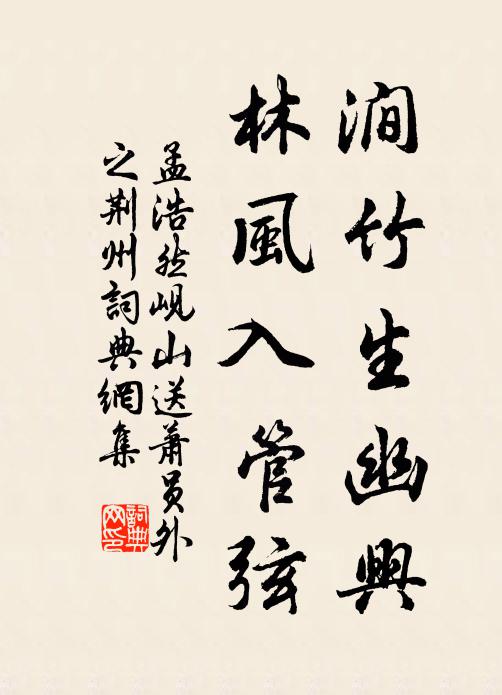 澗竹生幽興
林風入管弦
孟浩然峴山送蕭员外
之荆州詞典網集
詞典网印